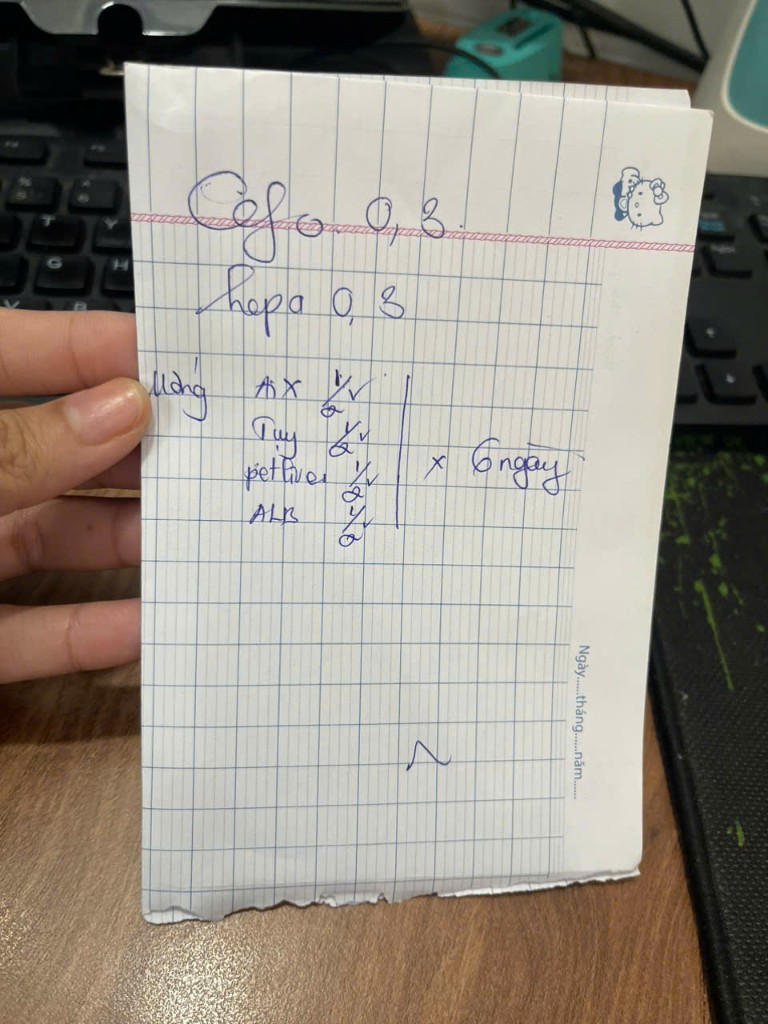 Cefo 0,3
hepa 0,3
Uống AiX 1/2v
Tụy 1/2v
petliver 1/2v
ALB 1/2v
x 6 ngày
Ngày.....tháng......năm......